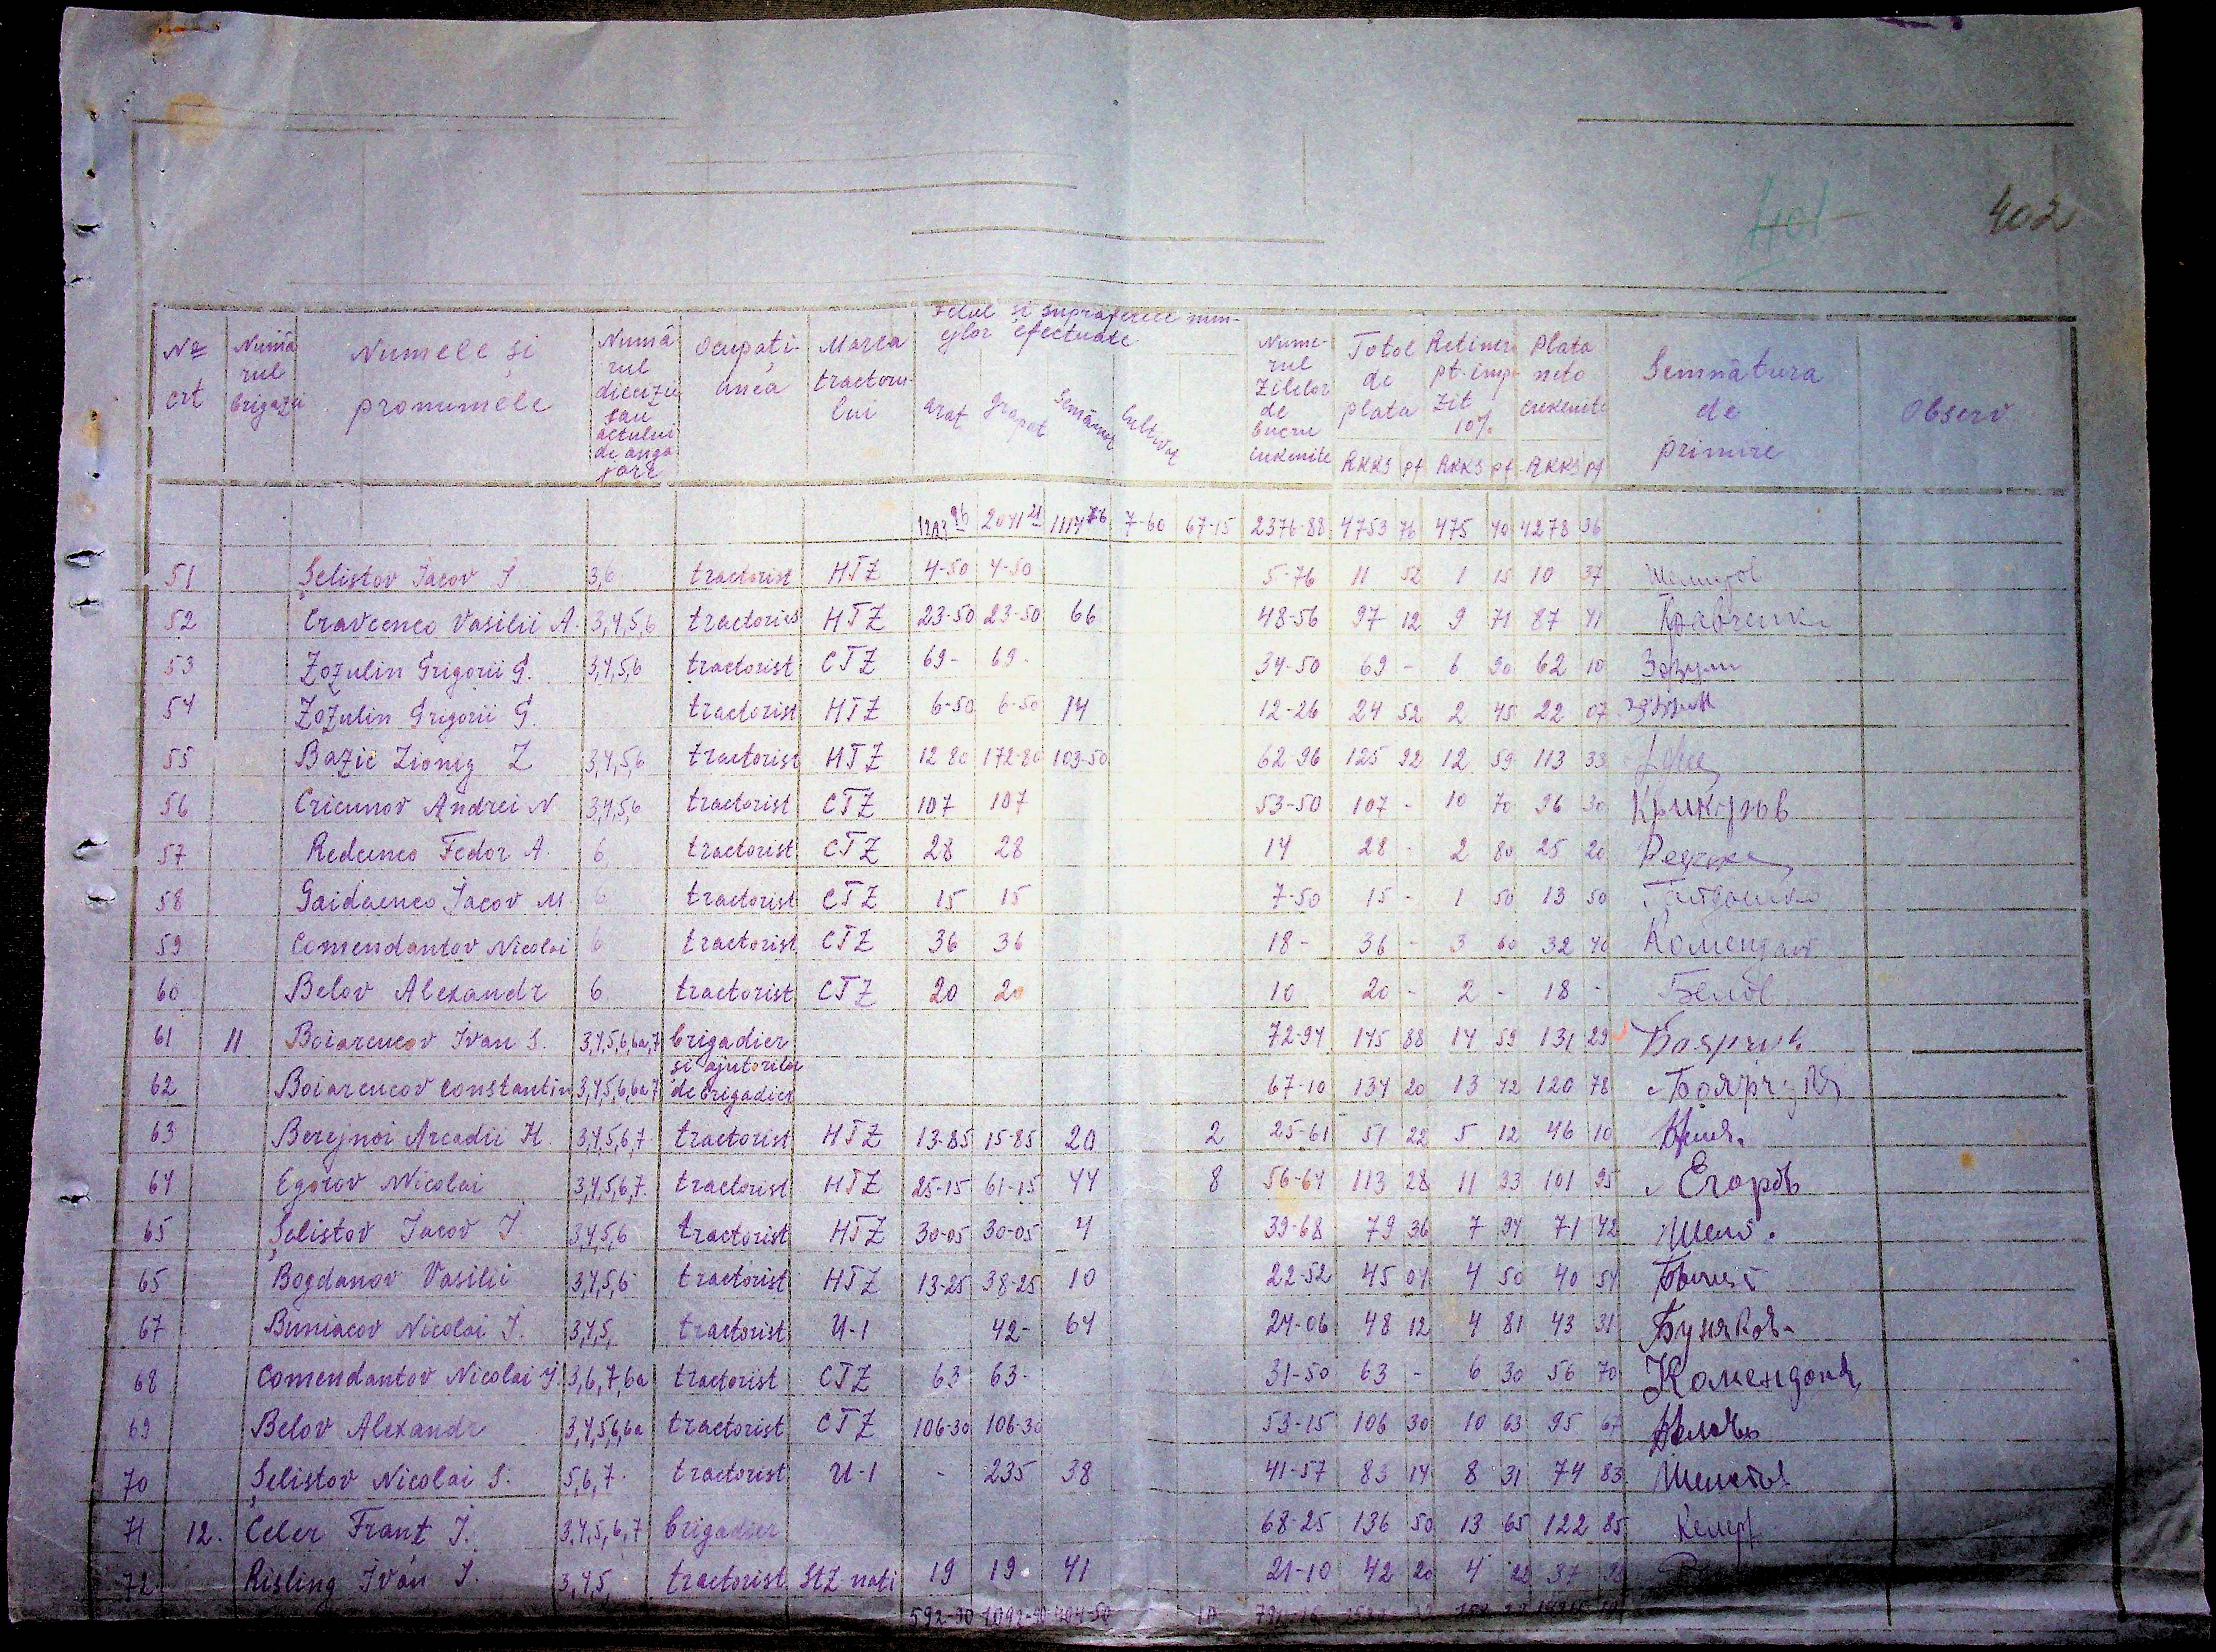 401 402
Nr crt | Numărul brigăzii | Numele și pronumele | Numărul dieizii sau actului de angajare | Ocupațiunea | Marca tractorului | Felul și suprafețele muncilor efectuate: arat, grapat, Semănat, Cultivat | Numerul Zilelor de lucru cuvenite | Total de plata RKKS pf | Retineri pt. impozit 10% RKKS pf | Plata neto cuvenite RKKS pf | Semnătura de primire | Observ
1223 96 2041 21 1117 76 7-60 67-15 2376-88 4753 76 475 40 4278 36
51 Șelistov Jacov J 3,6 tractorist HTZ 4-50 4-50 5-76 11 52 1 15 10 37
52 Cravcenco Vasilii A. 3,4,5,6 tractorist HTZ 23-50 23-50 66 48-56 97 12 9 71 87 41 Кравченк
53 Zozulin Grigorii G. 3,4,5,6 tractorist CTZ 69- 69- 34-50 69 - 6 90 62 10 Зозулин
54 Zozulin Grigorii G. tractorist HTZ 6-50 6-50 14 12-26 24 52 2 45 22 07
55 Bazic Lionig Z 3,4,5,6 tractorist HTZ 12 80 172-80 103-50 62-96 125 92 12 59 113 33
56 Cricunov Andrei N 3,4,5,6 tractorist CTZ 107 107 53-50 107 - 10 70 96 30 Крикунов
57 Redcenco Fedor A. 6 tractorist CTZ 28 28 14 28 - 2 80 25 20 Редченко
58 Gaidaenco Jacov M 6 tractorist CTZ 15 15 7-50 15 - 1 50 13 50 Гайдаенко
59 Comendantov Nicolai 6 tractorist CTZ 36 36 18- 36 - 3 60 32 40 Комендант
60 Belov Alexandr 6 tractorist CTZ 20 20 10 20 - 2 - 18 - Белов
61 11 Boiarcucov Ivan S. 3,4,5,6,6a,7 brigadier 72-94 145 88 14 59 131 29 Боярчук
62 Boiarcucov Constantin 3,4,5,6,6a 7 si ajutorilor de brigadier 67-10 134 20 13 42 120 78 Боярчук
63 Berejnoi Arcadii H. 3,4,5,6,7. tractorist HTZ 13-85 15-85 20 2 25-61 51 22 5 12 46 10
64 Egorov Nicolai 3,4,5,6,7. tractorist HTZ 25-15 61-15 44 8 56-64 113 28 11 33 101 95 Егоров
65 Șelistov Jacov J 3,4,5,6 tractorist HTZ 30-05 30-05 4 39-68 79 36 7 94 71 42 Шелс.
65 Bogdanov Vasilii 3,4,5,6 tractorist HTZ 13-25 38-25 10 22-52 45 04 4 50 40 54
67 Buniacov Nicolai J. 3,4,5, tractorist U-1 42- 64 24-06 48 12 4 81 43 31 Буняков
68 Comendantov Nicolai J. 3,6,7,6a tractorist CTZ 63 63- 31-50 63 - 6 30 56 70 Комендант
69 Belov Alexandr 3,4,5,6,6a tractorist CTZ 106-30 106-30 53-15 106 30 10 63 95 67 Белов
70 Șelistov Nicolai S. 5,6,7. tractorist U-1 - 235 38 41-57 83 14 8 31 74 83 Шелстов
71 12. Celer Franț J. 3,4,5,6,7 brigadier 68-25 136 50 13 65 122 85 Келер
72 Risling Ivan J. 3,4,5, tractorist StZ nati 19 19 41 21-10 42 20 4 22 37 98
592-90 1092-90 404-50 10